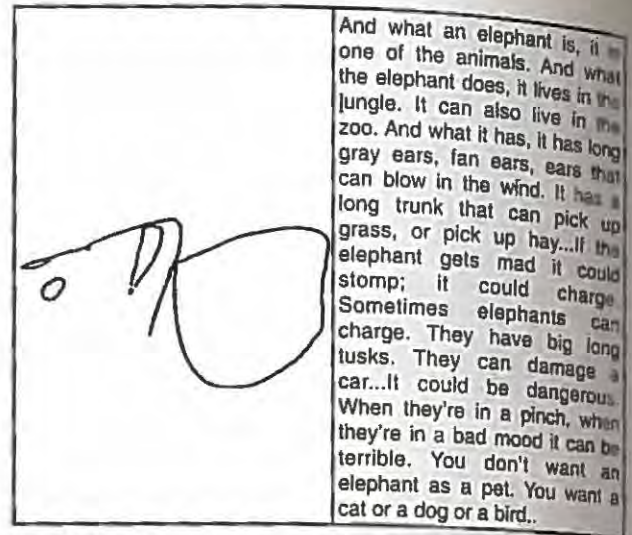 And what an elephant is, it is
one of the animals. And what
the elephant does, it lives in the
jungle. It can also live in the
zoo. And what it has, it has long
gray ears, fan ears, ears that
can blow in the wind. It has a
long trunk that can pick up
grass, or pick up hay...If the
elephant gets mad it could
stomp; it could charge.
Sometimes elephants can
charge. They have big long
tusks. They can damage a
car...It could be dangerous.
When they're in a pinch, when
they're in a bad mood it can be
terrible. You don't want an
elephant as a pet. You want a
cat or a dog or a bird..